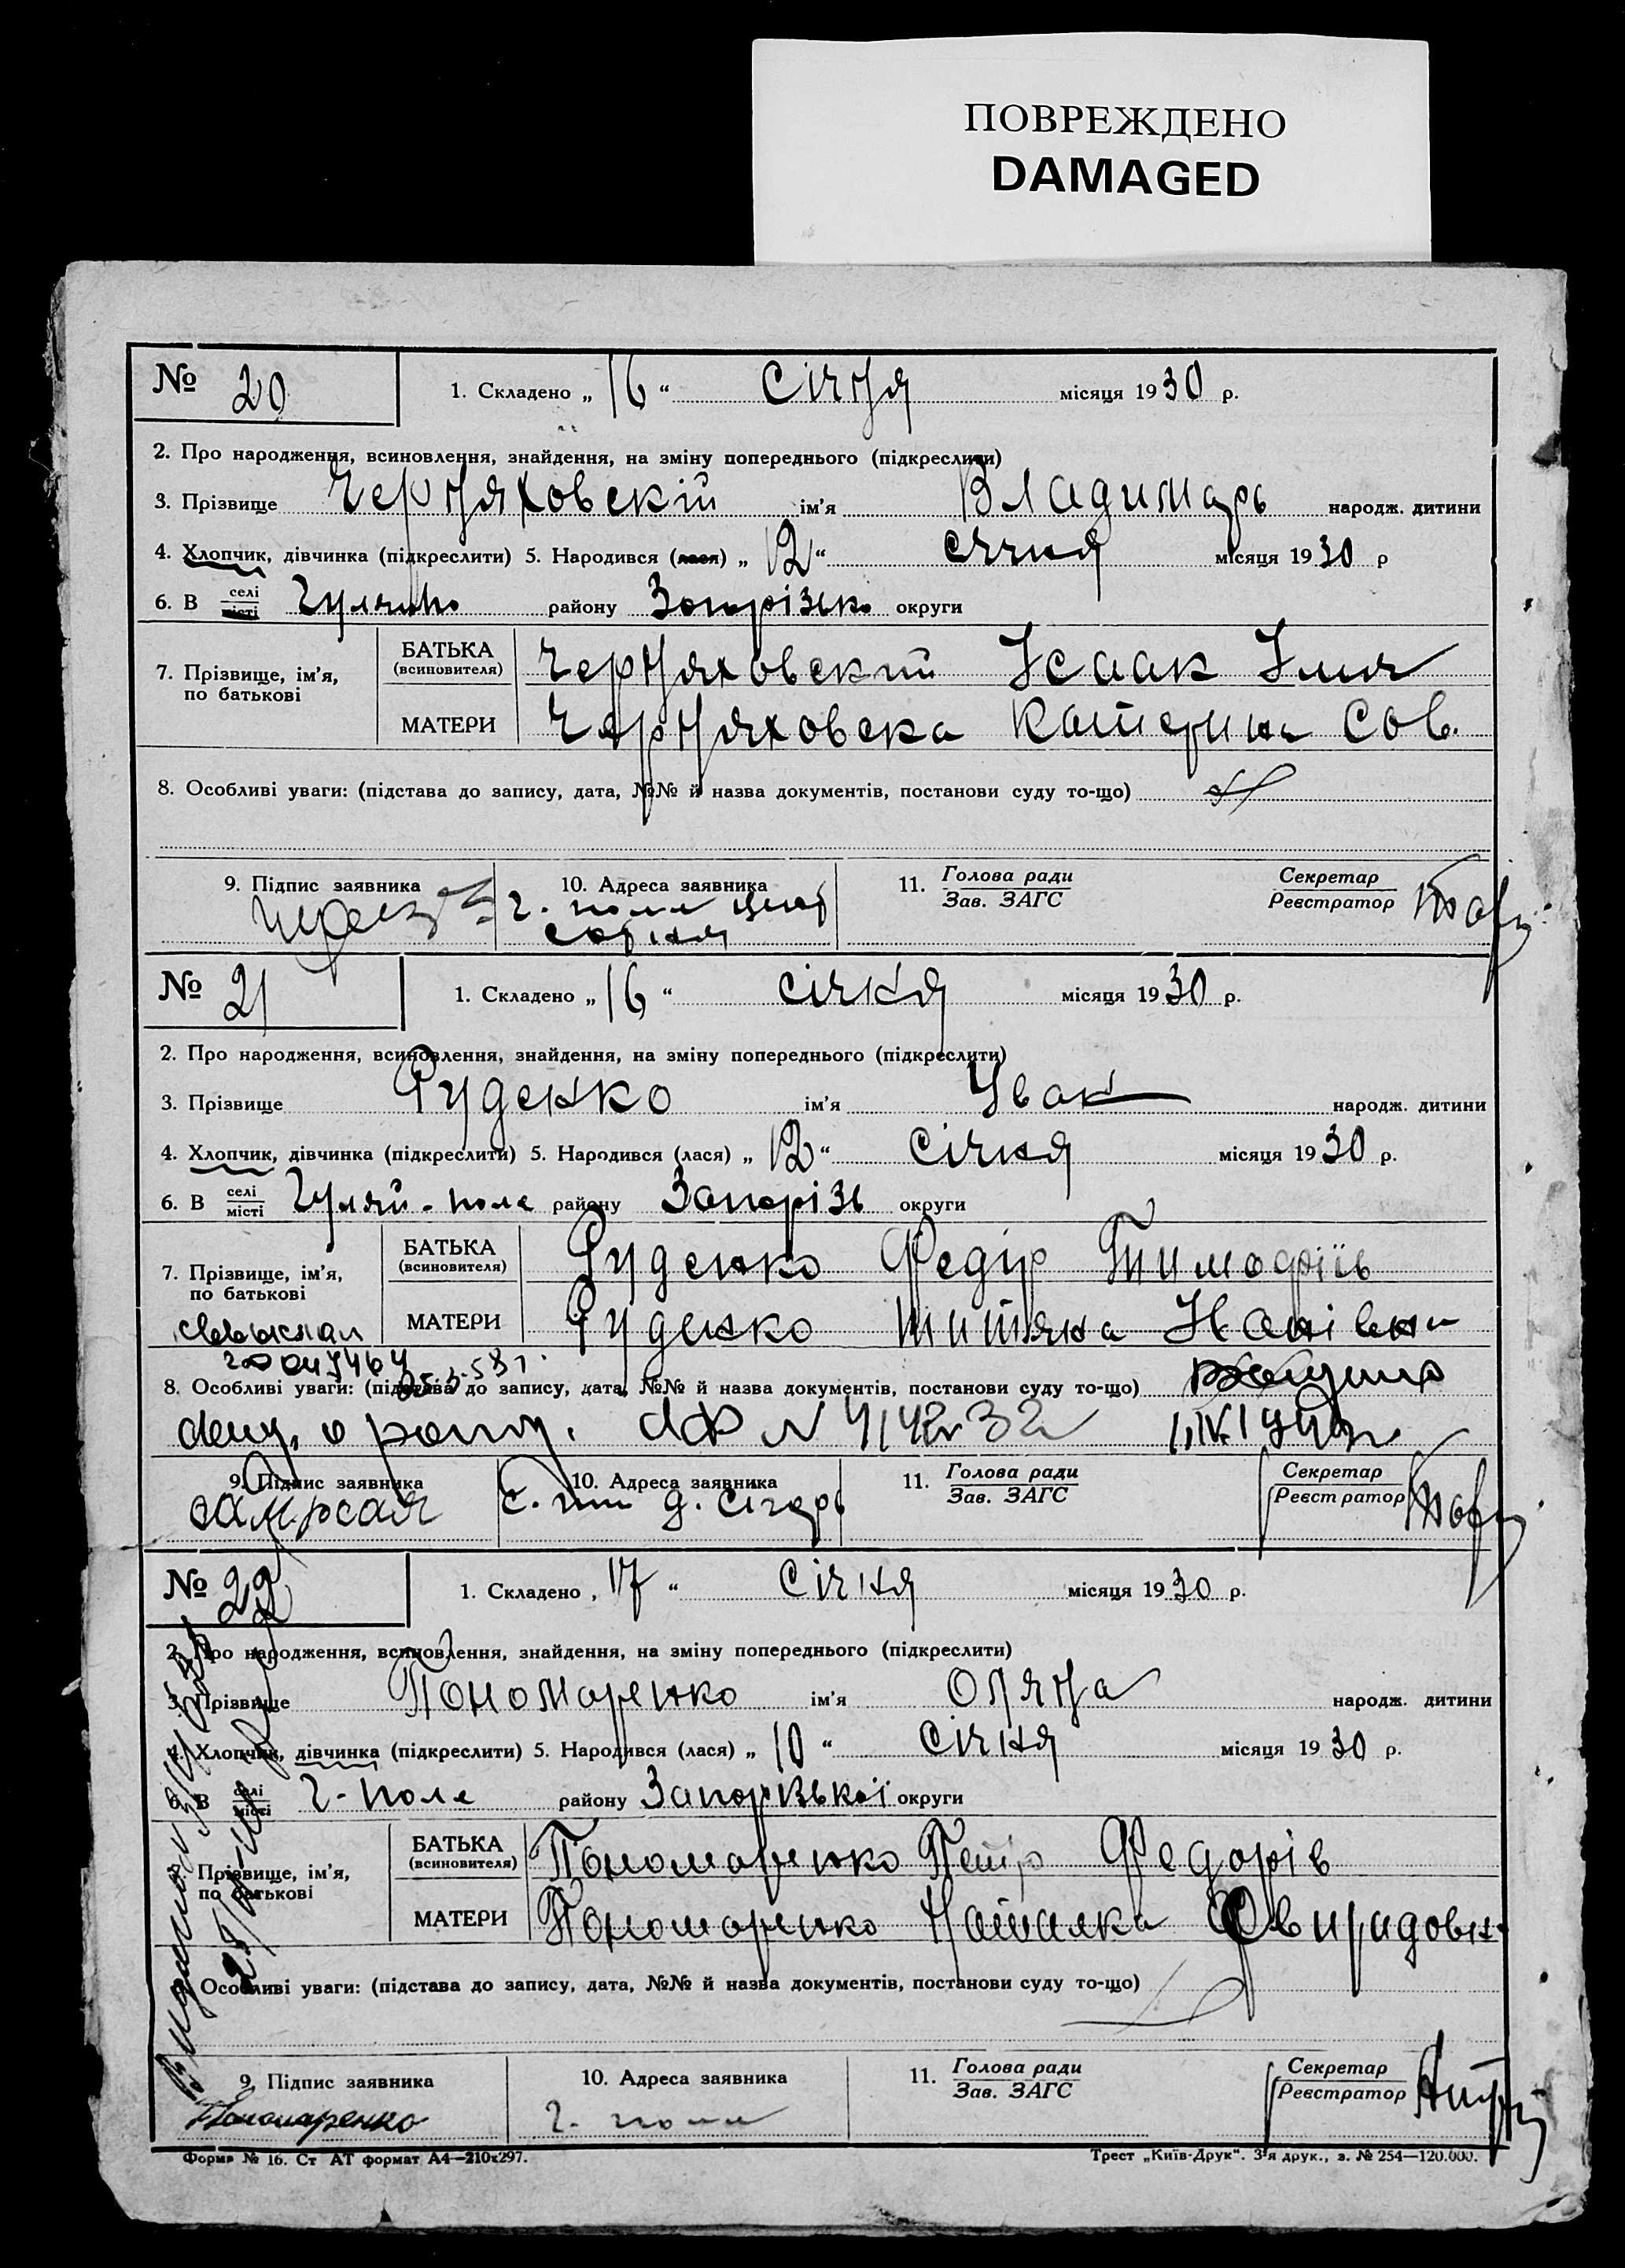 ПОВРЕЖДЕНО
DAMAGED
№ 20 1. Складено „ 16 “ Січня місяця 1930 р.
2. Про народження, всиновлення, знайдення, на зміну попереднього (підкреслити)
3. Прізвище Черняховскій ім'я Владимарь народж. дитини
4. Хлопчик, дівчинка (підкреслити) 5. Народився (лася) „ 12 “ січня місяця 1930 р
6. В селі місті району округи
7. Прізвище, ім'я, по батькові
БАТЬКА (всиновителя) Черняховский Ісаак Ілия
МАТЕРИ Черняховска Катерина Сав.
8. Особливі уваги: (підстава до запису, дата, №№ й назва документів, постанови суду то-що)
9. Підпис заявника 10. Адреса заявника 11. Голова ради Зав. ЗАГС Секретар Реєстратор
№ 21 1. Складено „ 16 “ січня місяця 1930 р.
2. Про народження, всиновлення, знайдення, на зміну попереднього (підкреслити)
3. Прізвище Руденко ім'я Іван народж. дитини
4. Хлопчик, дівчинка (підкреслити) 5. Народився (лася) „ 12 “ Січня місяця 1930 р.
6. В селі місті Гуляй-поле району Запоріз округи
7. Прізвище, ім'я, по батькові
БАТЬКА (всиновителя) Руденко Федір Тимофіїв
МАТЕРИ Руденко
8. Особливі уваги: (підстава до запису, дата, №№ й назва документів, постанови суду то-що)
9. Підпис заявника 10. Адреса заявника 11. Голова ради Зав. ЗАГС Секретар Реєстратор
№ 22 1. Складено „ 17 “ Січня місяця 1930 р.
2. Про народження, всиновлення, знайдення, на зміну попереднього (підкреслити)
3. Прізвище Пономаренко ім'я Оляна народж. дитини
4. Хлопчик, дівчинка (підкреслити) 5. Народився (лася) „ 10 “ Січня місяця 1930 р.
6. В селі місті Г-Поле району Запорізької округи
Прізвище, ім'я, по батькові
БАТЬКА (всиновителя) Пономаренко Петро Федорів
МАТЕРИ Пономаренко Наталка Свиридовн
Особливі уваги: (підстава до запису, дата, №№ й назва документів, постанови суду то-що)
9. Підпис заявника 10. Адреса заявника 11. Голова ради Зав. ЗАГС Секретар Реєстратор
Пономаренко Г. поле
Форма № 16. Ст АТ формат А4—210х297. Трест „Київ-Друк“. 3-я друк., з. № 254—120.000.